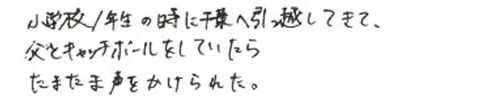 小学校1年生の時に千葉へ引っ越してきて、
父とキャッチボールをしていたら
たまたま声をかけられた。